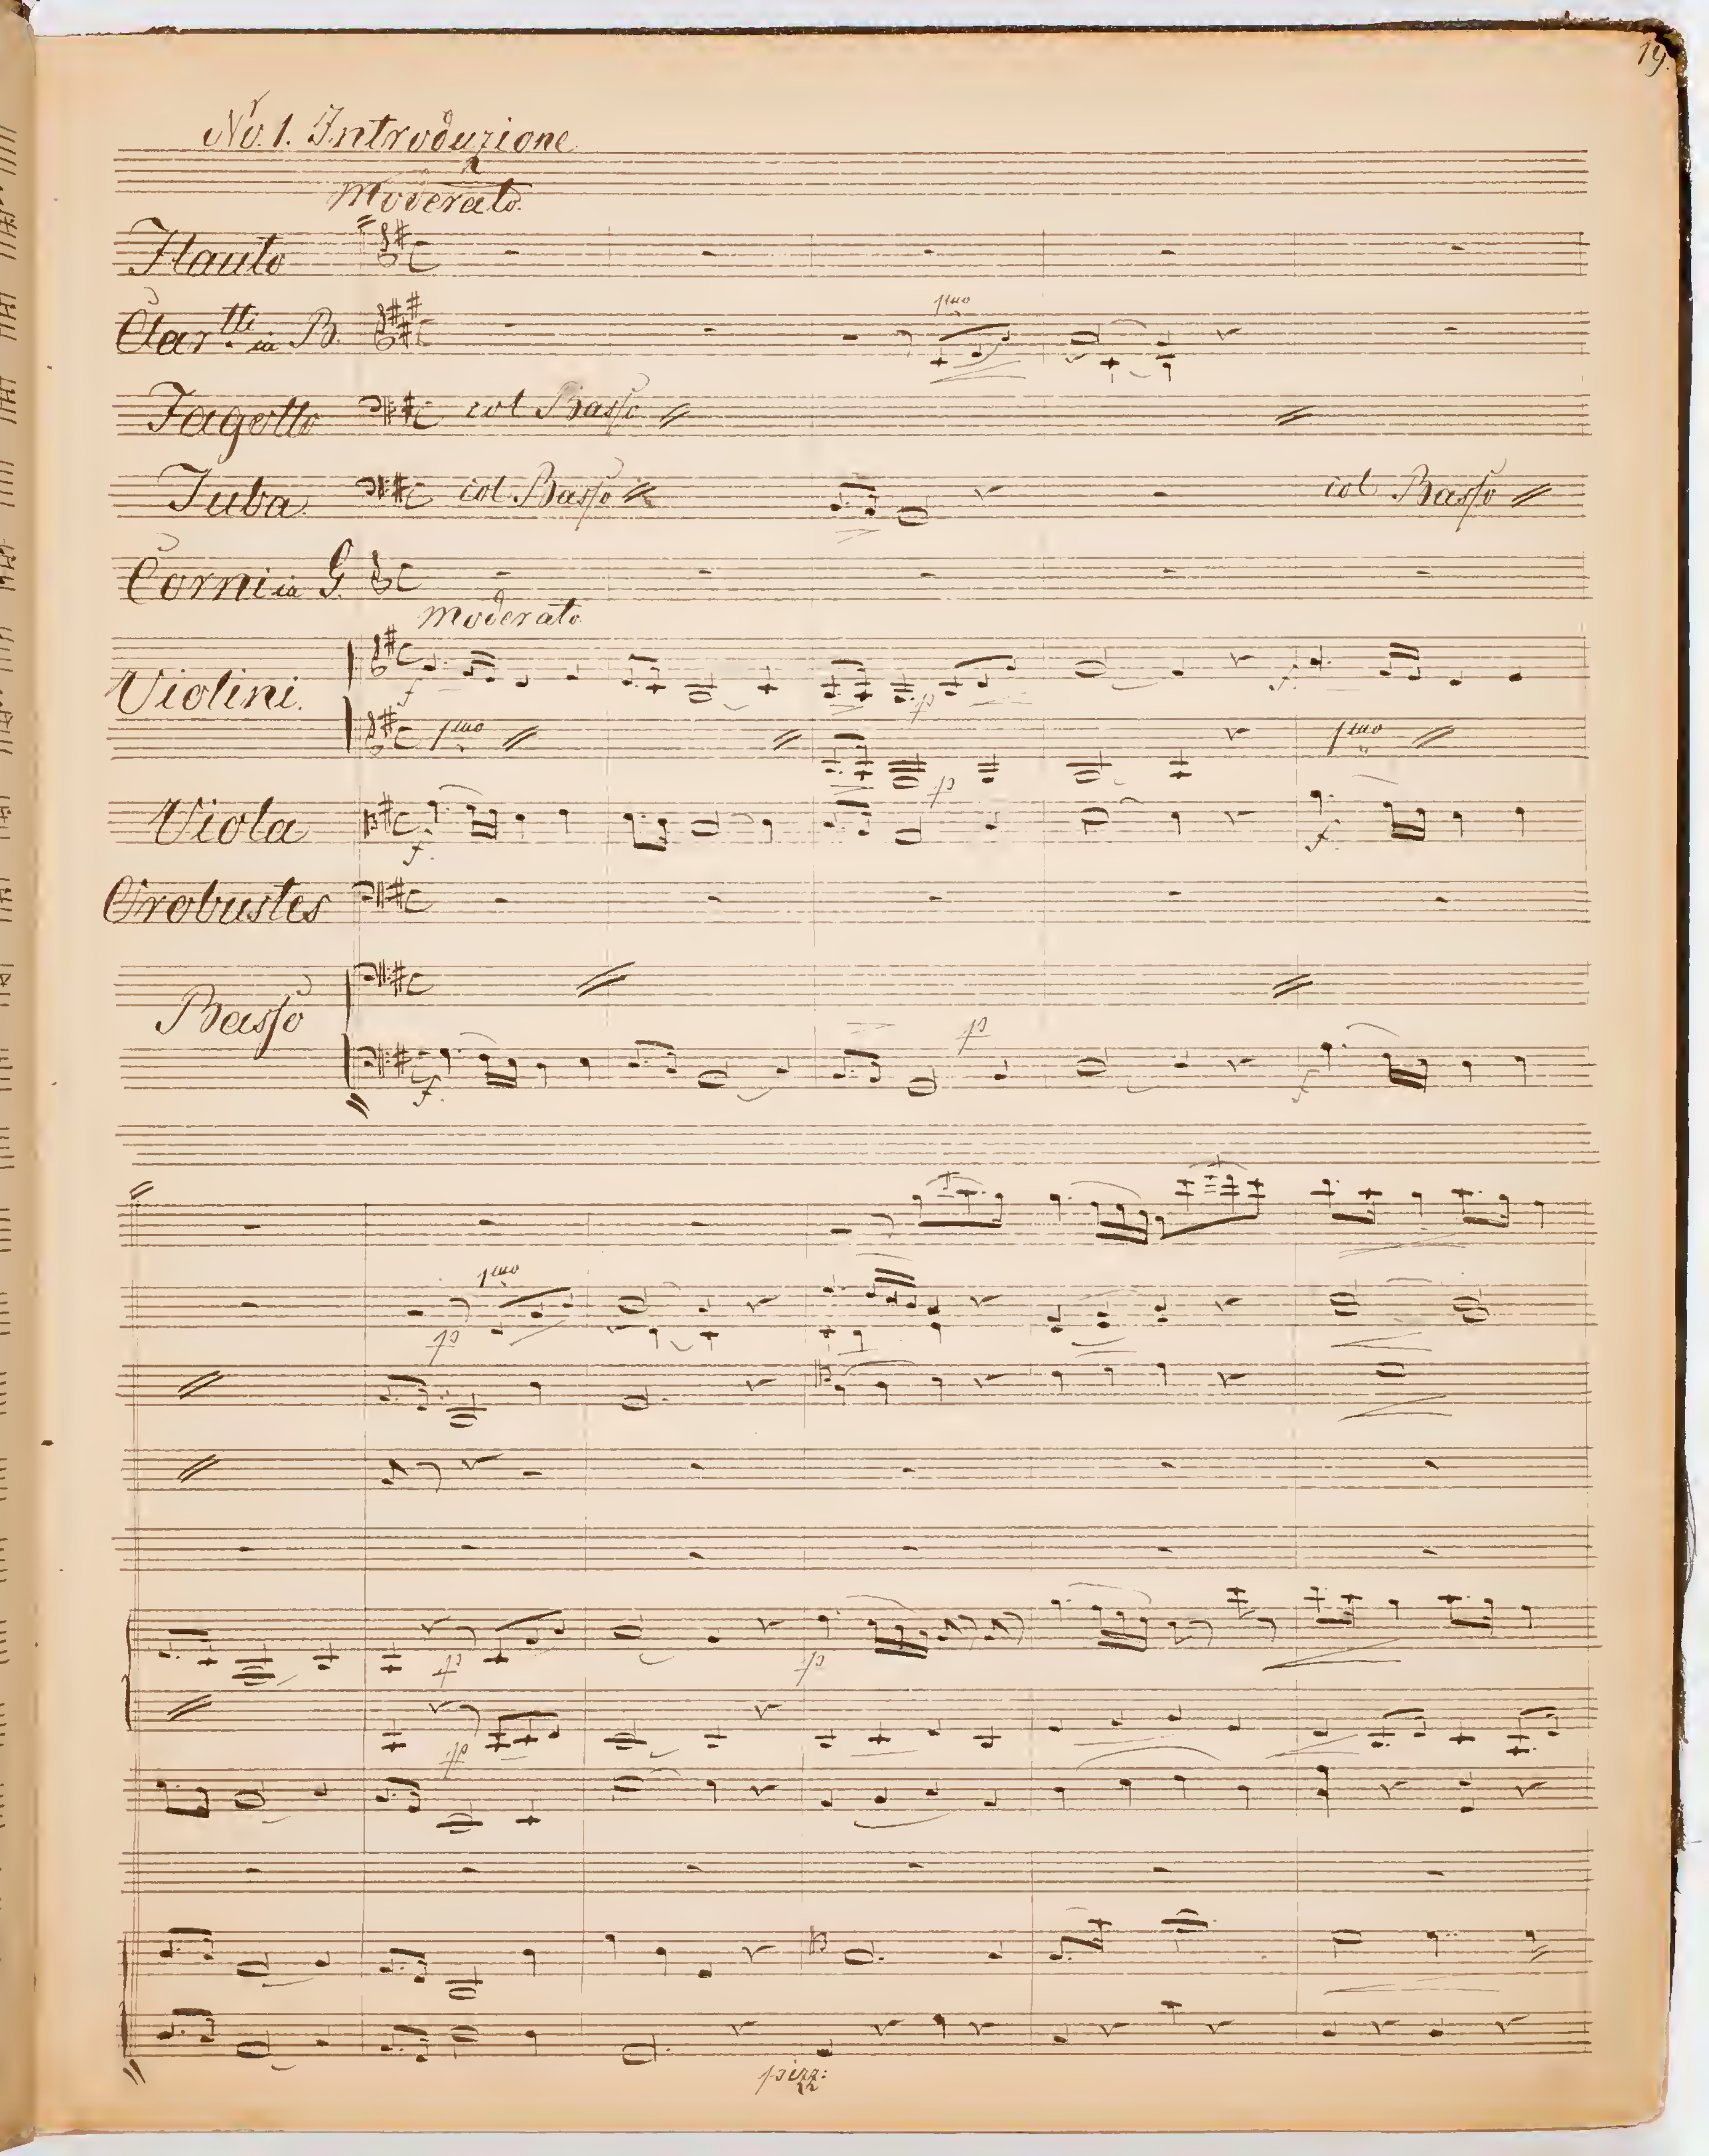 19.
No. 1. Introduzione
Moderato.
Flauto
Clartti in B.
1mo
Fagotto col Basso
Tuba col Basso col Basso
Corni in G.
Moderato
Violini. f p f
1mo p 1mo
Viola f. f
Orobustes
Basso
p
f. f
1mo
p
p fp
fp
pizz: